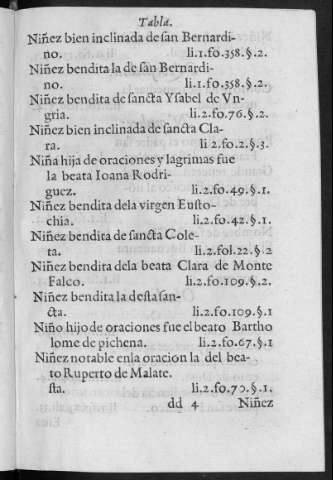 Tabla.
Niñez bien inclinada de san Bernardi-
no. li.1.fo.358.§.2.
Niñez bendita la de san Bernardi-
no. li.1.fo.358.§.2.
Niñez bendita de sancta Ysabel de Vn-
gria. li.2.fo.76.§.2.
Niñez bien inclinada de sancta Cla-
ra. li 2.fo.2.§.3.
Niña hija de oraciones y lagrimas fue
la beata Ioana Rodri-
guez. li.2.fo.49.§.1.
Niñez bendita dela virgen Eusto-
chia. li.2.fo.42.§.1.
Niñez bendita de sancta Cole-
ta. li 2.fol.22.§ 2
Niñez bendita dela beata Clara de Monte
Falco. li.2.fo.109.§.2.
Niñez bendita la desta san-
cta. li.2.fo.109.§.1
Niño hijo de oraciones fue el beato Bartho
lome de pichena. li.2.fo.67.§.1
Niñez notable enla oracion la del bea-
to Ruperto de Malate.
sta. li.2.fo.70.§.1.
dd 4 Niñez